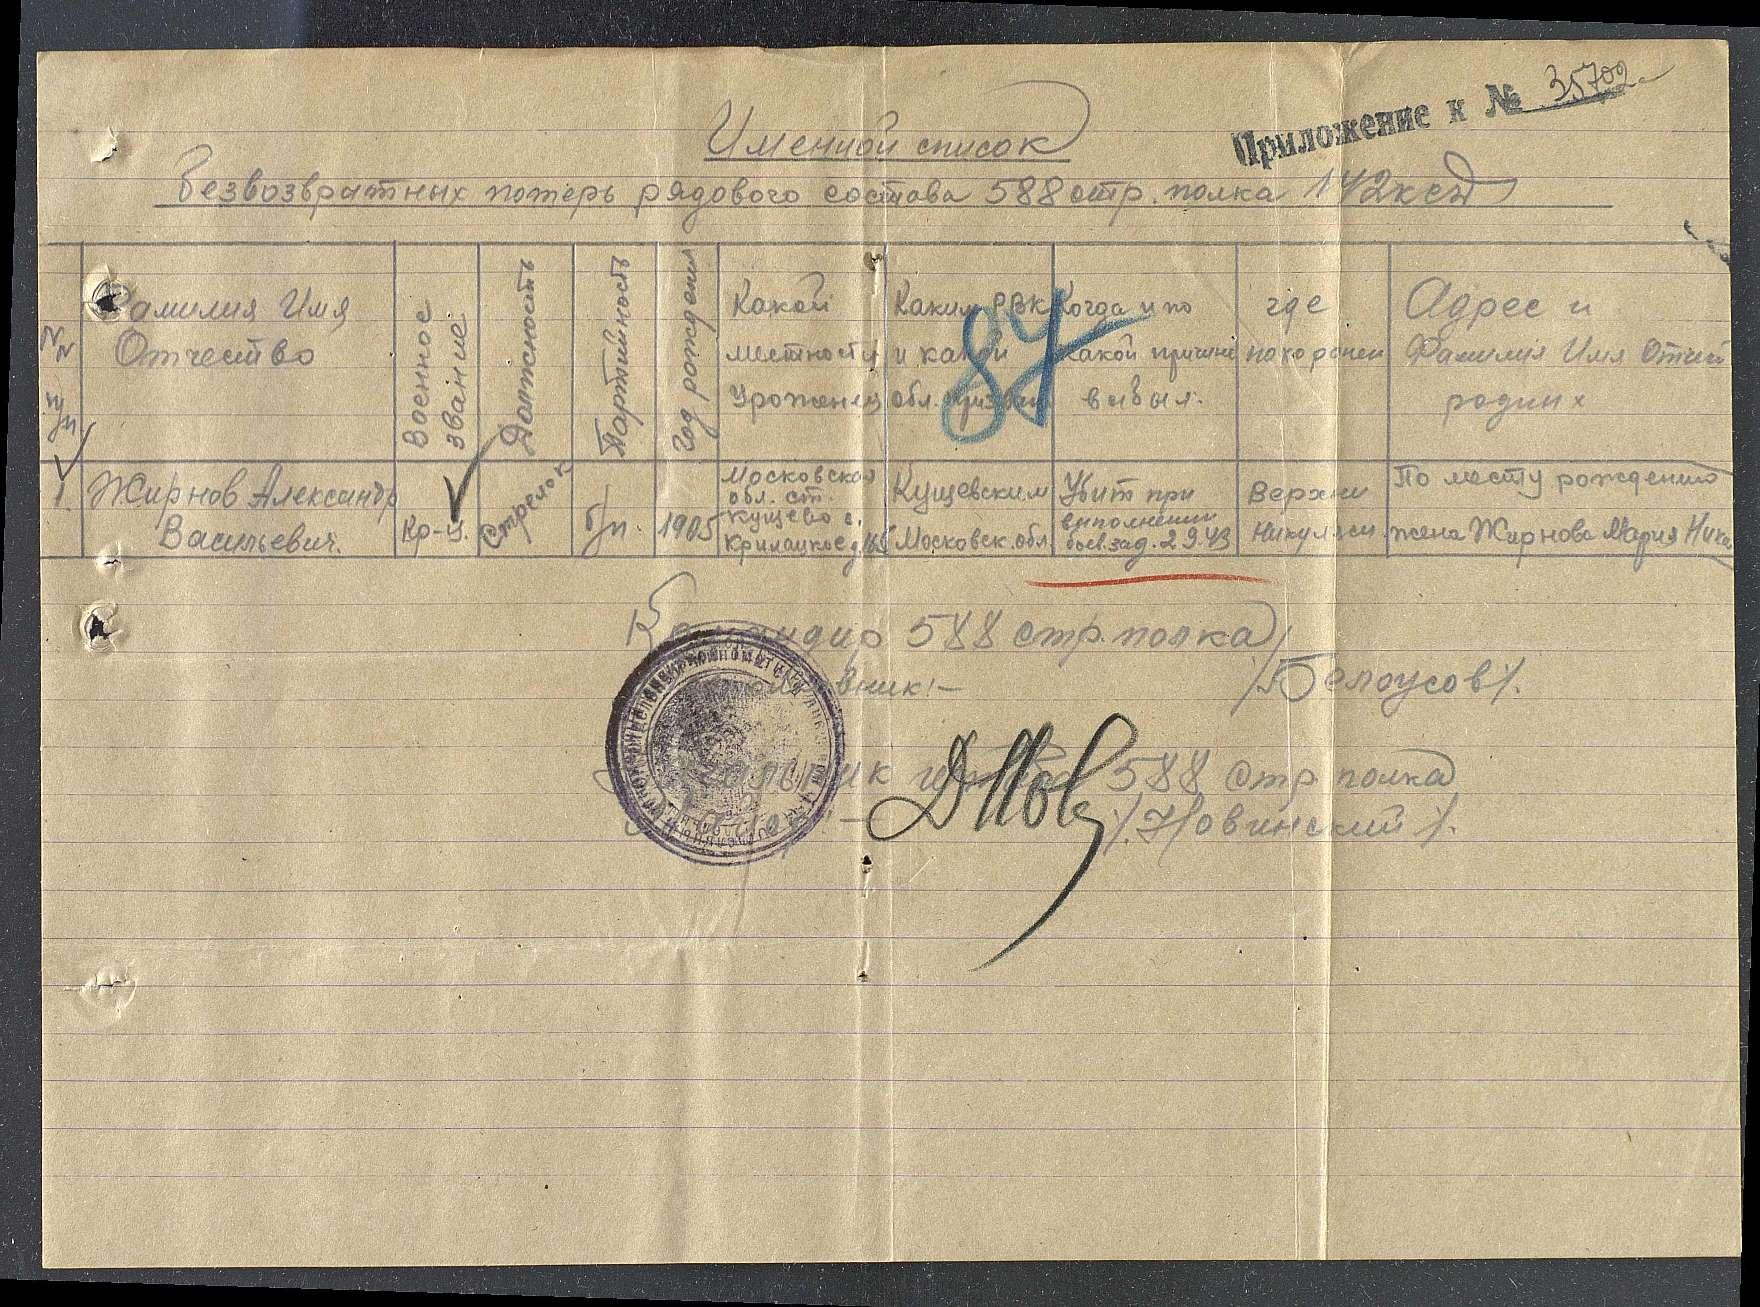 Приложение к № 35702
Именной список
безвозвратных потерь рядового состава 588 стр. полка 142 ксд
№№ п/п
Фамилия Имя
Отчество
Военное
звание
Должность
Партийность
Год рождения
Какой
местности
Уроженец
Каким РВК
и какой
обл. призван
87
Когда и по
какой причине
выбыл.
где
похоронен
Адрес и
Фамилия Имя Отчест
родных
1.
Жирнов Александр
Васильевич.
Кр-ц.
Стрелок
б/п.
1905
Московская
обл. ст.
Кущево с.
Крилацкое
Кущевским
Московск. обл.
Убит при
выполнении
боев. зад. 2.9.43
Верхни
Никуляси
По месту рождения
жена Жирнова Мария Ника
Командир 588 стр. полка
вник:-
/Белоусов/.
588 стр полка
/Новинский/.